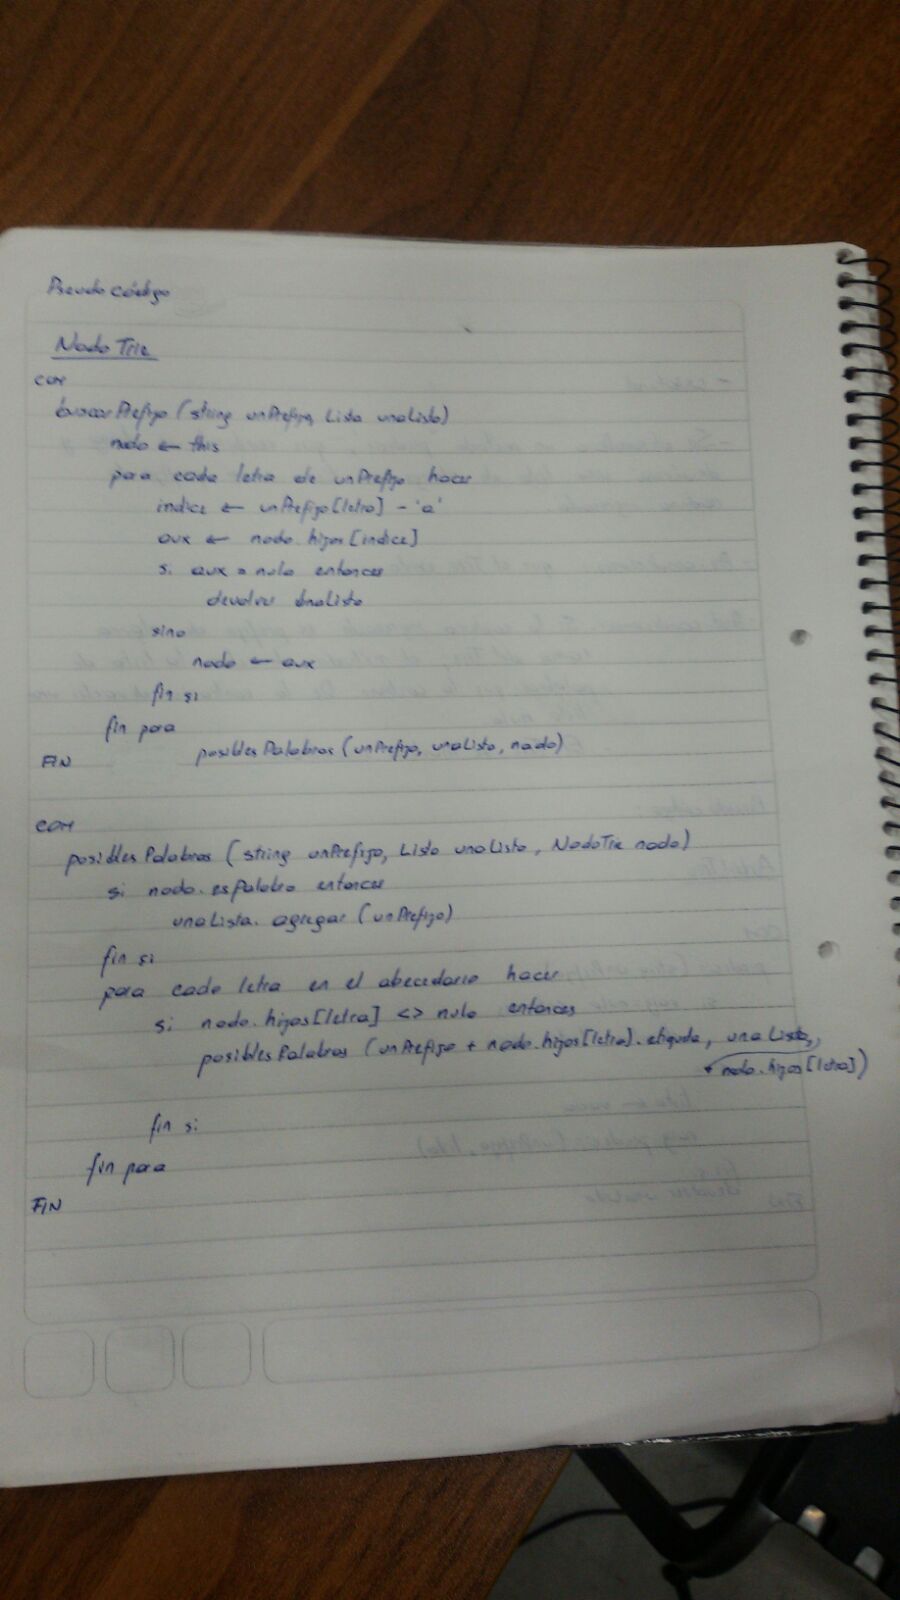 Pseudo código
Nodo Trie
COM
buscarPrefijo (string unPrefijo, Lista unaLista)
nodo ← this
para cada letra de unPrefijo hacer
indice ← unPrefijo[letra] - 'a'
aux ← nodo.hijos[indice]
si aux = nulo entonces
devolver unaLista
sino
nodo ← aux
fin si
fin para
posiblesPalabras (unPrefijo, unaLista, nodo)
FIN
COM
posiblesPalabras (string unPrefijo, Lista unaLista, NodoTrie nodo)
si nodo.esPalabra entonces
unaLista.agregar (unPrefijo)
fin si
para cada letra en el abecedario hacer
si nodo.hijos[letra] <> nulo entonces
posiblesPalabras (unPrefijo + nodo.hijos[letra].etiqueta, unaLista,
nodo.hijos[letra])
fin si
fin para
FIN